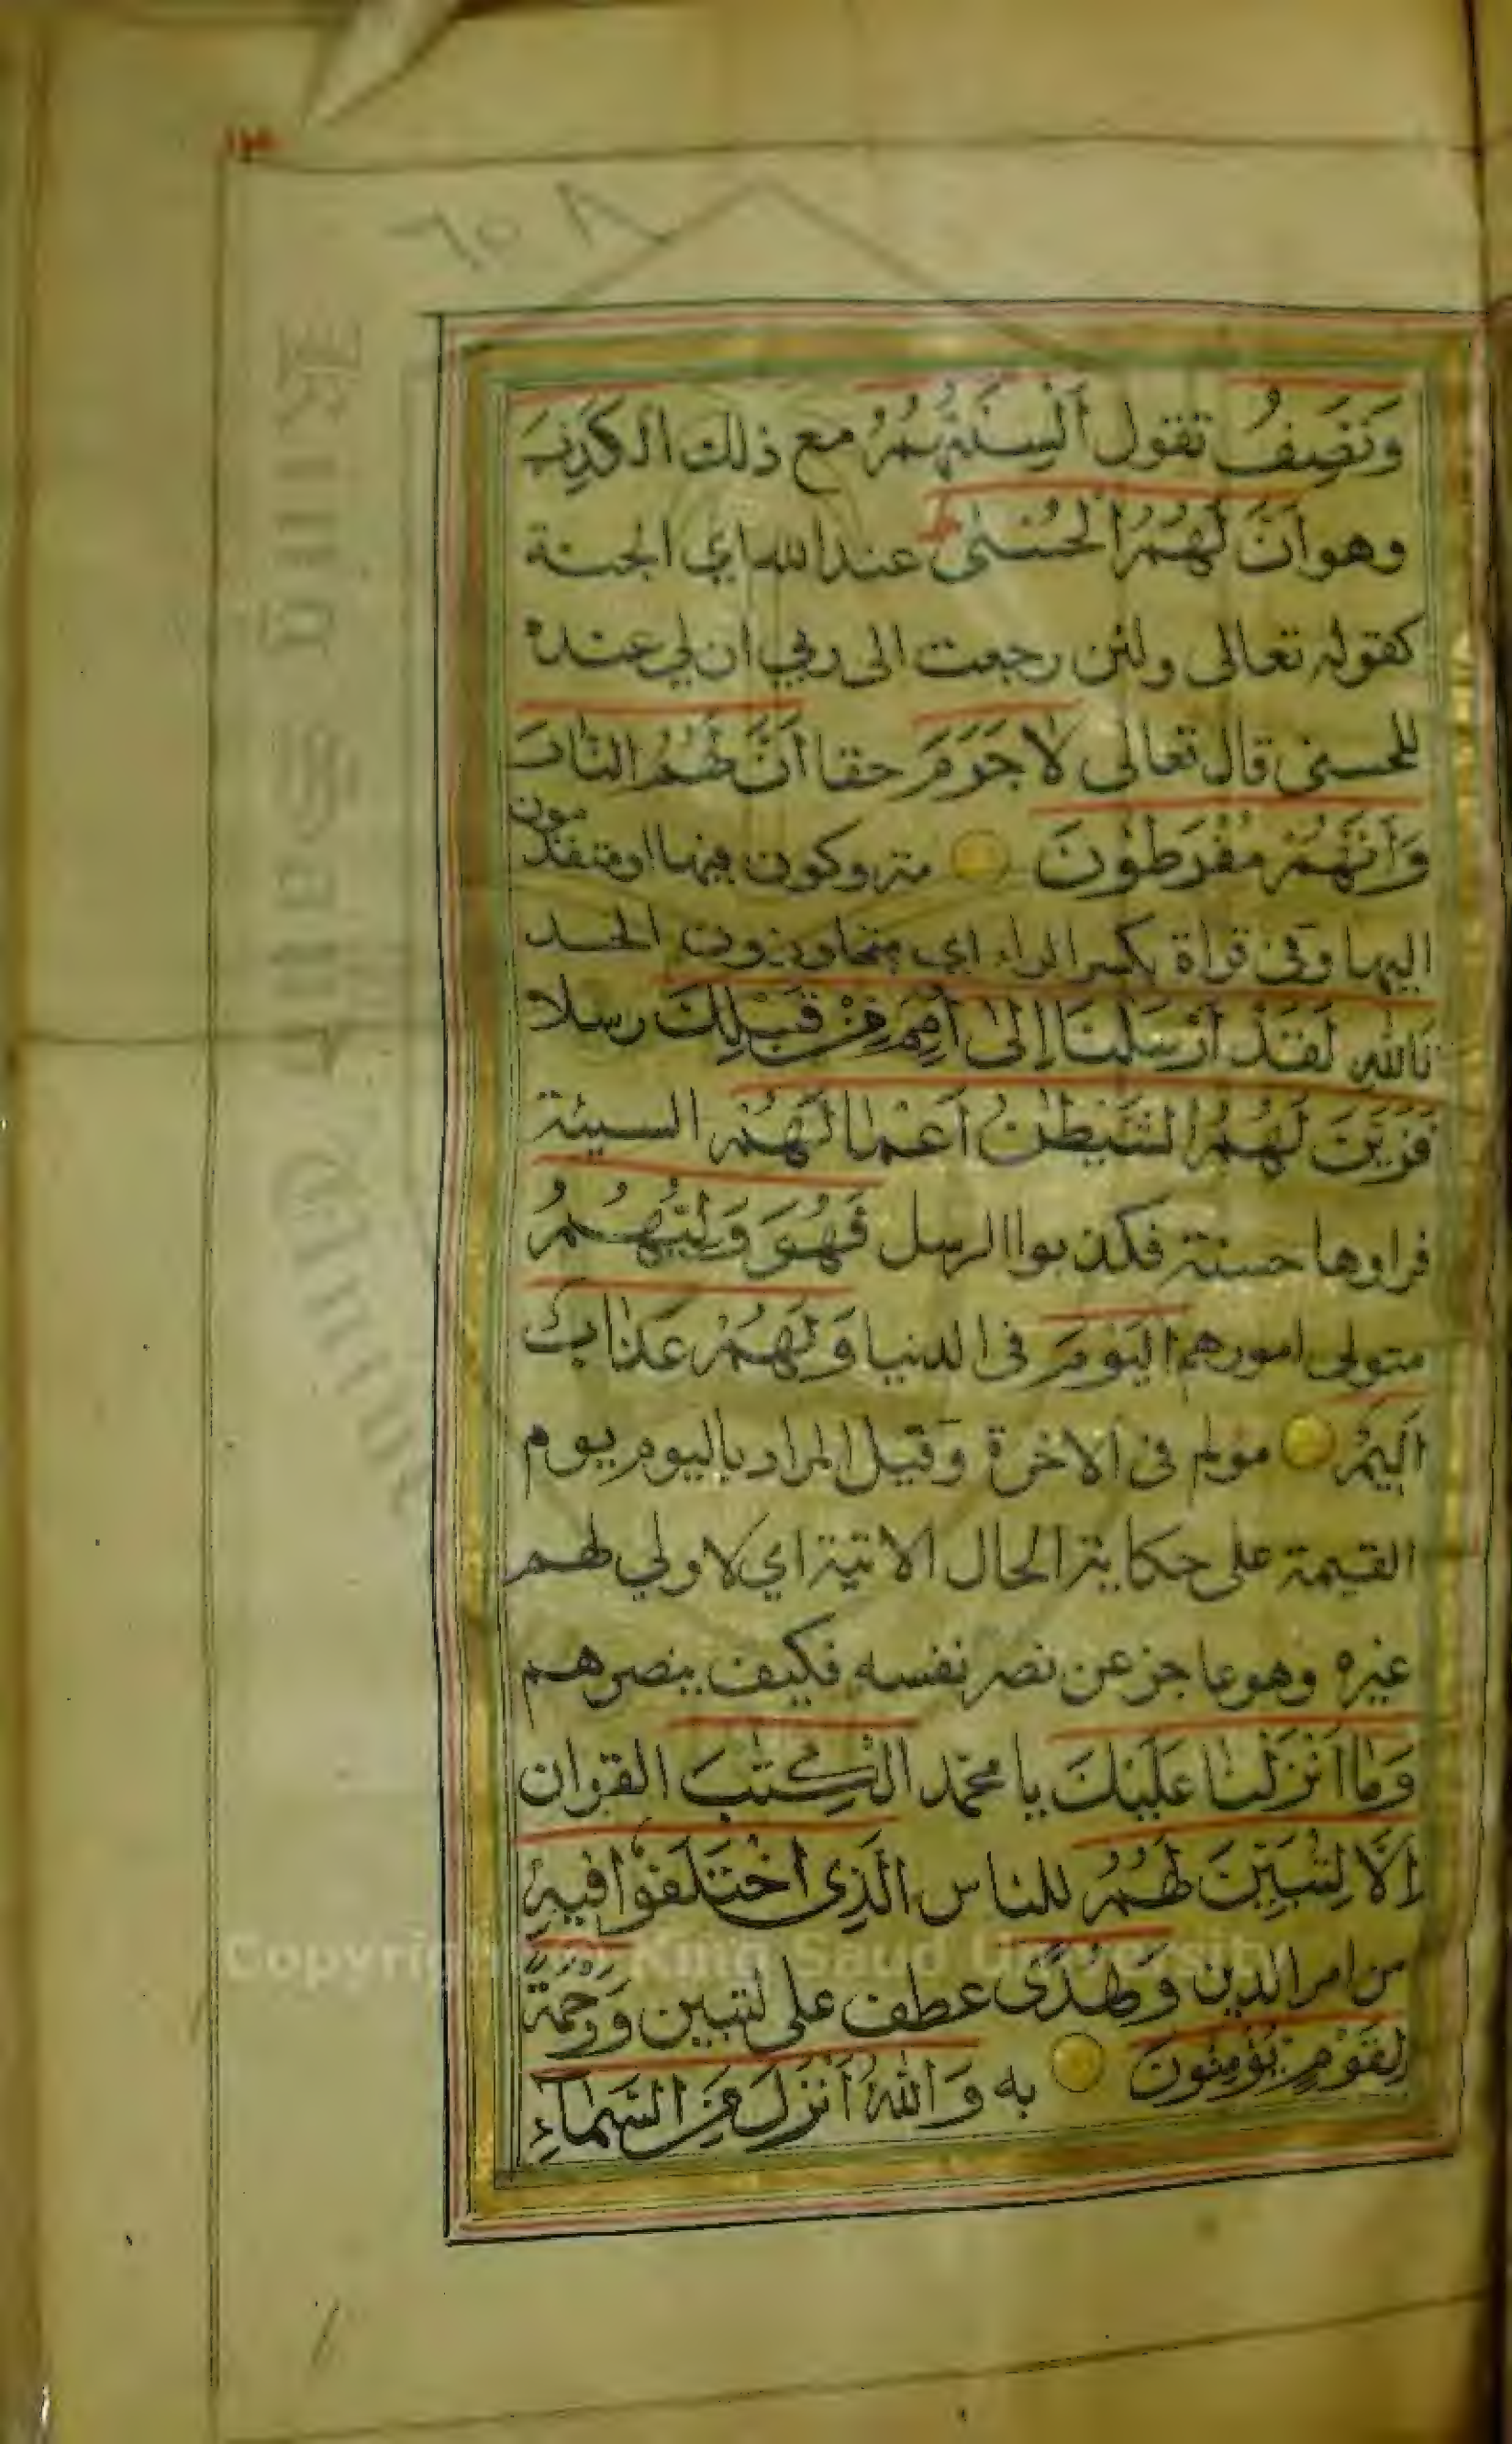 ٦٥٨
وَتَصِفُ تقول أَلْسِنَتُهُمُ مع ذلك الْكَذِبَ
وهو أَنَّ لَهُمُ الْحُسْنٰى عند الله اي الجنة
كقوله تعالى ولئن رجعت الى ربي ان لي عنده
للحسنى قال تعالى لَا جَرَمَ حقا أَنَّ لَهُمُ النَّارَ
وَأَنَّهُمْ مُفْرَطُونَ متروكون فيها او متقدمون
اليها وفى قراة بكسر الراء اي متجاوزون الحد
تَاللهِ لَقَدْ أَرْسَلْنَا إِلٰى أُمَمٍ مِنْ قَبْلِكَ رسلا
فَزَيَّنَ لَهُمُ الشَّيْطٰنُ أَعْمَالَهُمْ السيئة
فراوها حسنة فكذبوا الرسل فَهُوَ وَلِيُّهُمُ
متولى امورهم الْيَوْمَ فى الدنيا وَلَهُمْ عَذَابٌ
أَلِيمٌ مولم فى الاخرة وقيل المراد باليوم يوم
القيمة على حكاية الحال الاتية اي لا ولي لهم
غيره وهو عاجز عن نصر نفسه فكيف ينصرهم
وَمَا أَنْزَلْنَا عَلَيْكَ يا محمد الْكِتٰبَ القران
إِلَّا لِتُبَيِّنَ لَهُمُ للناس الَّذِى اخْتَلَفُوا فِيهِ
من امر الدين وَهُدًى عطف على لتبين وَرَحْمَةً
لِقَوْمٍ يُؤْمِنُونَ به وَاللهُ أَنْزَلَ مِنَ السَّمَاءِ
Copyright © King Saud University